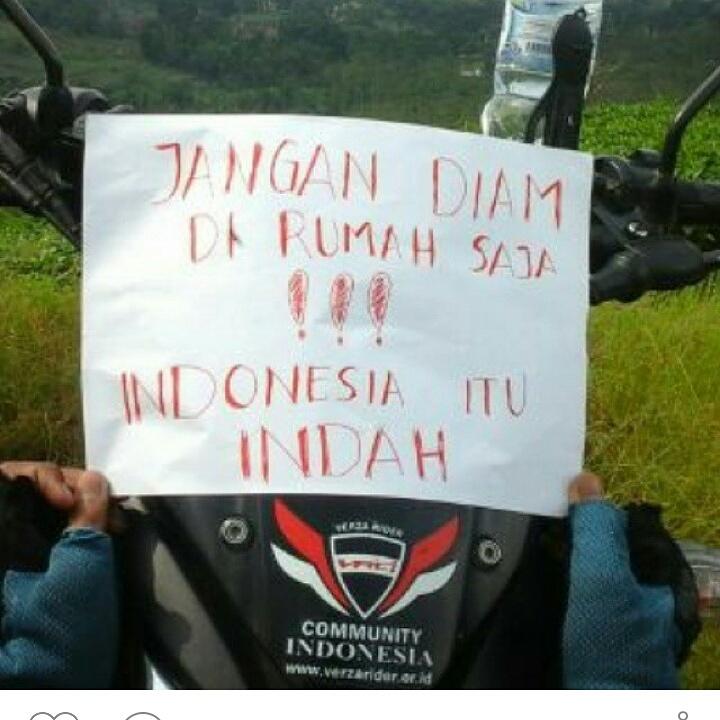 JANGAN DIAM
DI RUMAH SAJA
!!!
INDONESIA ITU
INDAH
VERZA RIDER
COMMUNITY
INDONESIA
www.verzarider.or.id